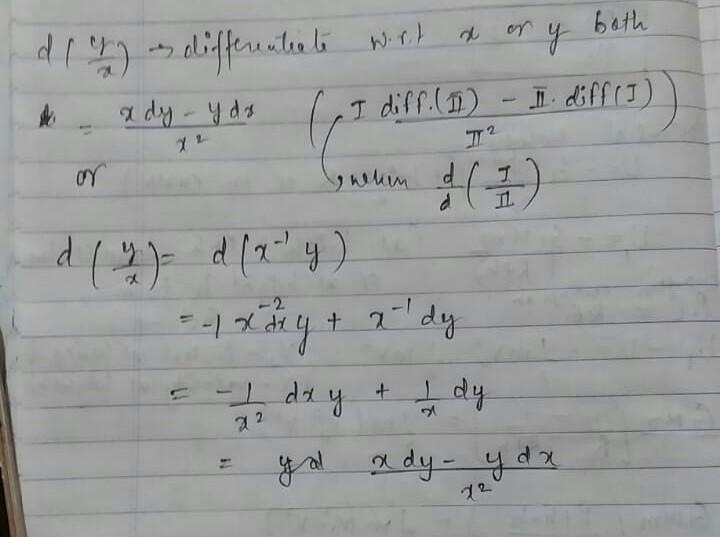 d(y/x) → differentiate w.r.t x or y both
= (x dy - y dx)/x² ( (I diff.(II) - II. diff(I))/II² )
or ↳ when d/d (I/II)
d(y/x) = d(x⁻¹ y)
= -1 x⁻² dx y + x⁻¹ dy
= -1/x² dx y + 1/x dy
= (x dy - y dx)/x²